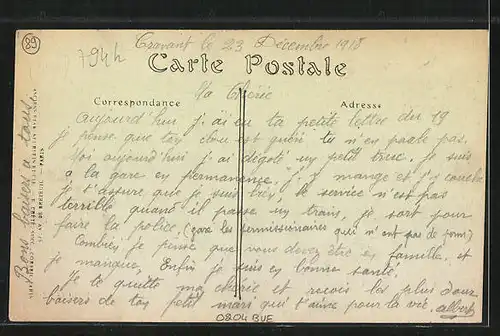 89
794h
Cravant le 23 Décembre 1918
Carte Postale
Correspondance
Adresse
Ma Chérie
aujourd'hui j'ai eu ta petite lettre du 19
je pense que ton clou est guéri tu n'en parle pas.
Moi aujourd'hui j'ai dégoté un petit truc. je suis
a la gare en permanence. j'y mange et j'y couche
je t'assure que je suis bien, le service n'est pas
terrible, quand il passe un train, je sort pour
faire la police. (gare les permissionnaires qui n'ont pas de perm)
Combien je pense que vous devez être en famille, et
je manque. Enfin je suis en bonne santé.
Je te quitte ma chérie et reçois les plus doux
baisers de ton petit mari qui t'aime pour la vie. Albert
Bons baisers a tous
PARIS
0804 BVE